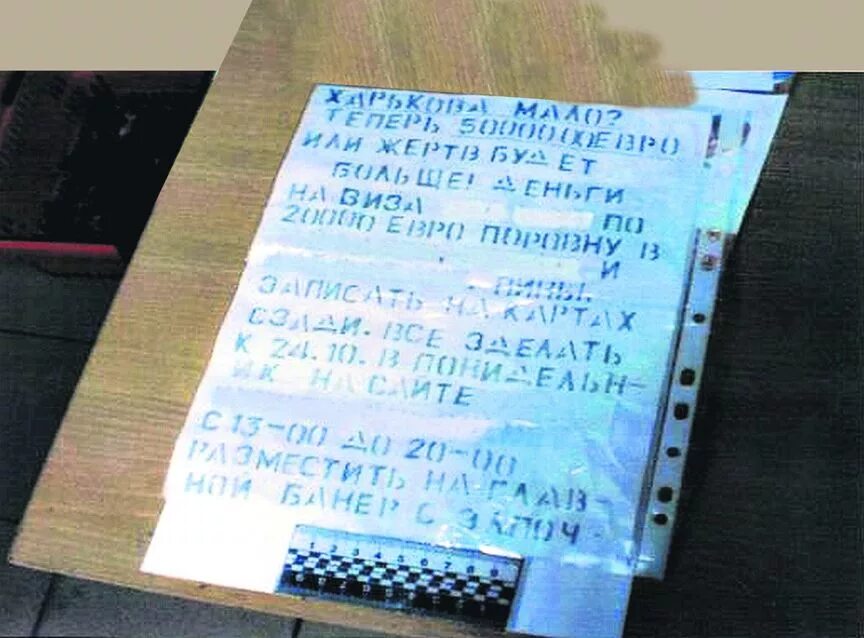 ХАРЬКОВА МАЛО?
ТЕПЕРЬ 5000000 ЕВРО
ИЛИ ЖЕРТВ БУДЕТ
БОЛЬШЕ! ДЕНЬГИ
НА ВИЗА ПО
20000 ЕВРО ПОРОВНУ В
И
ПИНЫ.
ЗАПИСАТЬ НА КАРТАХ
СЗАДИ. ВСЕ ЗДЕЛАТЬ
К 24.10. В ПОНИДЕЛЬН-
ИК НА САЙТЕ
С 13-00 ДО 20-00
РАЗМЕСТИТЬ НА ГЛАВ-
НОЙ БАНЕР С ЭЛ ПОЧ
1 2 3 4 5 6 7 8 9